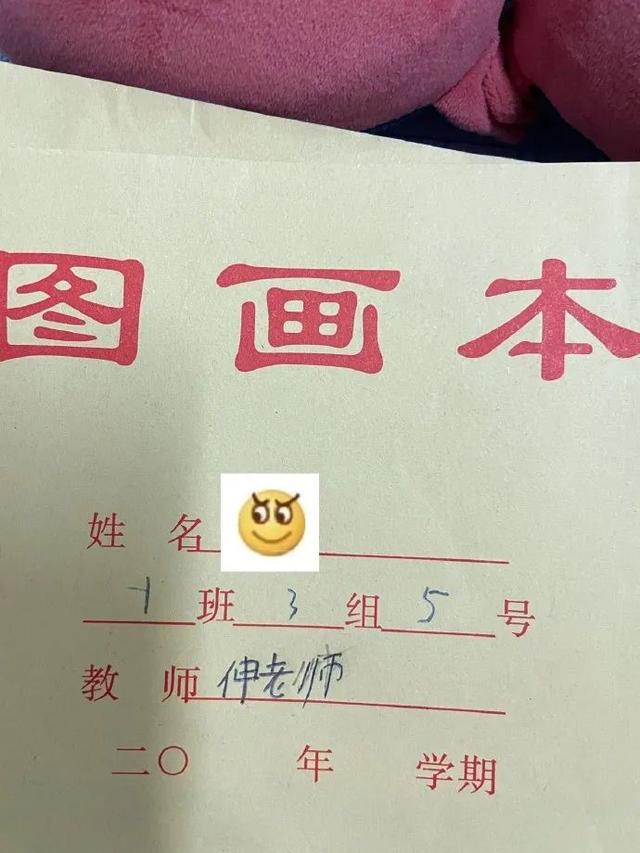 图画本
姓 名
班 3 组 5 号
教 师 伸老师
二〇 年 学期